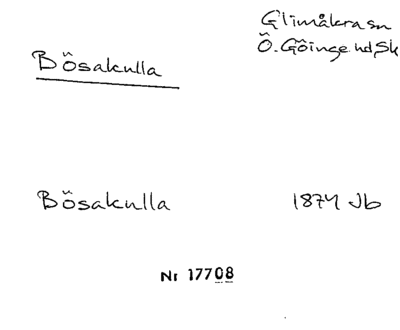 Glimåkra sn
Bösakulla
Ö. Göinge hd, Sk
Bösakulla 1874 Jb
Nr 17708